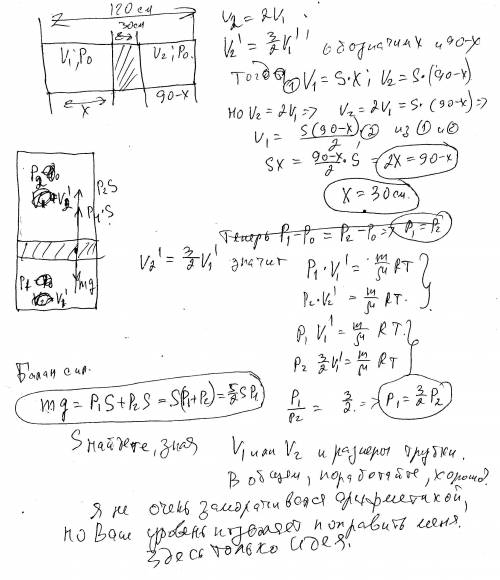 120 см
30см
V₁; P₀ V₂; P₀
x 90-x
V₂ = 2V₁
V₂' = 3/2 V₁'
обозначим x и 90-x
Тогда ① V₁ = S·x; V₂ = S·(90-x)
но V₂ = 2V₁ => V₂ = 2V₁ = S·(90-x) =>
V₁ = S(90-x)/2 ·② из ① и ②
Sx = (90-x)/2 · S = 2x = 90-x
x = 30 см.
V₂'
P₂S
P₁'S
mg
V₁'
Теперь P₁-P₀ = P₂-P₀ => P₁ = P₂
V₂' = 3/2 V₁' значит
P₁·V₁' = m/μ RT
P₂·V₂' = m/μ RT.
P₁ V₁' = m/μ RT.
P₂ 3/2 V₁' = m/μ RT
P₁/P₂ = 3/2. => P₁ = 3/2 P₂
Балан сил.
mg = P₁S + P₂S = S(P₁+P₂) = 5/2 SP₁
S найдете, зная V₁ или V₂ и размеры трубки.
В общем, поработайте, хорошо.
Я не очень заморачивался арифметикой,
но Ваш уровень позволяет поправить меня.
Здесь только идея.